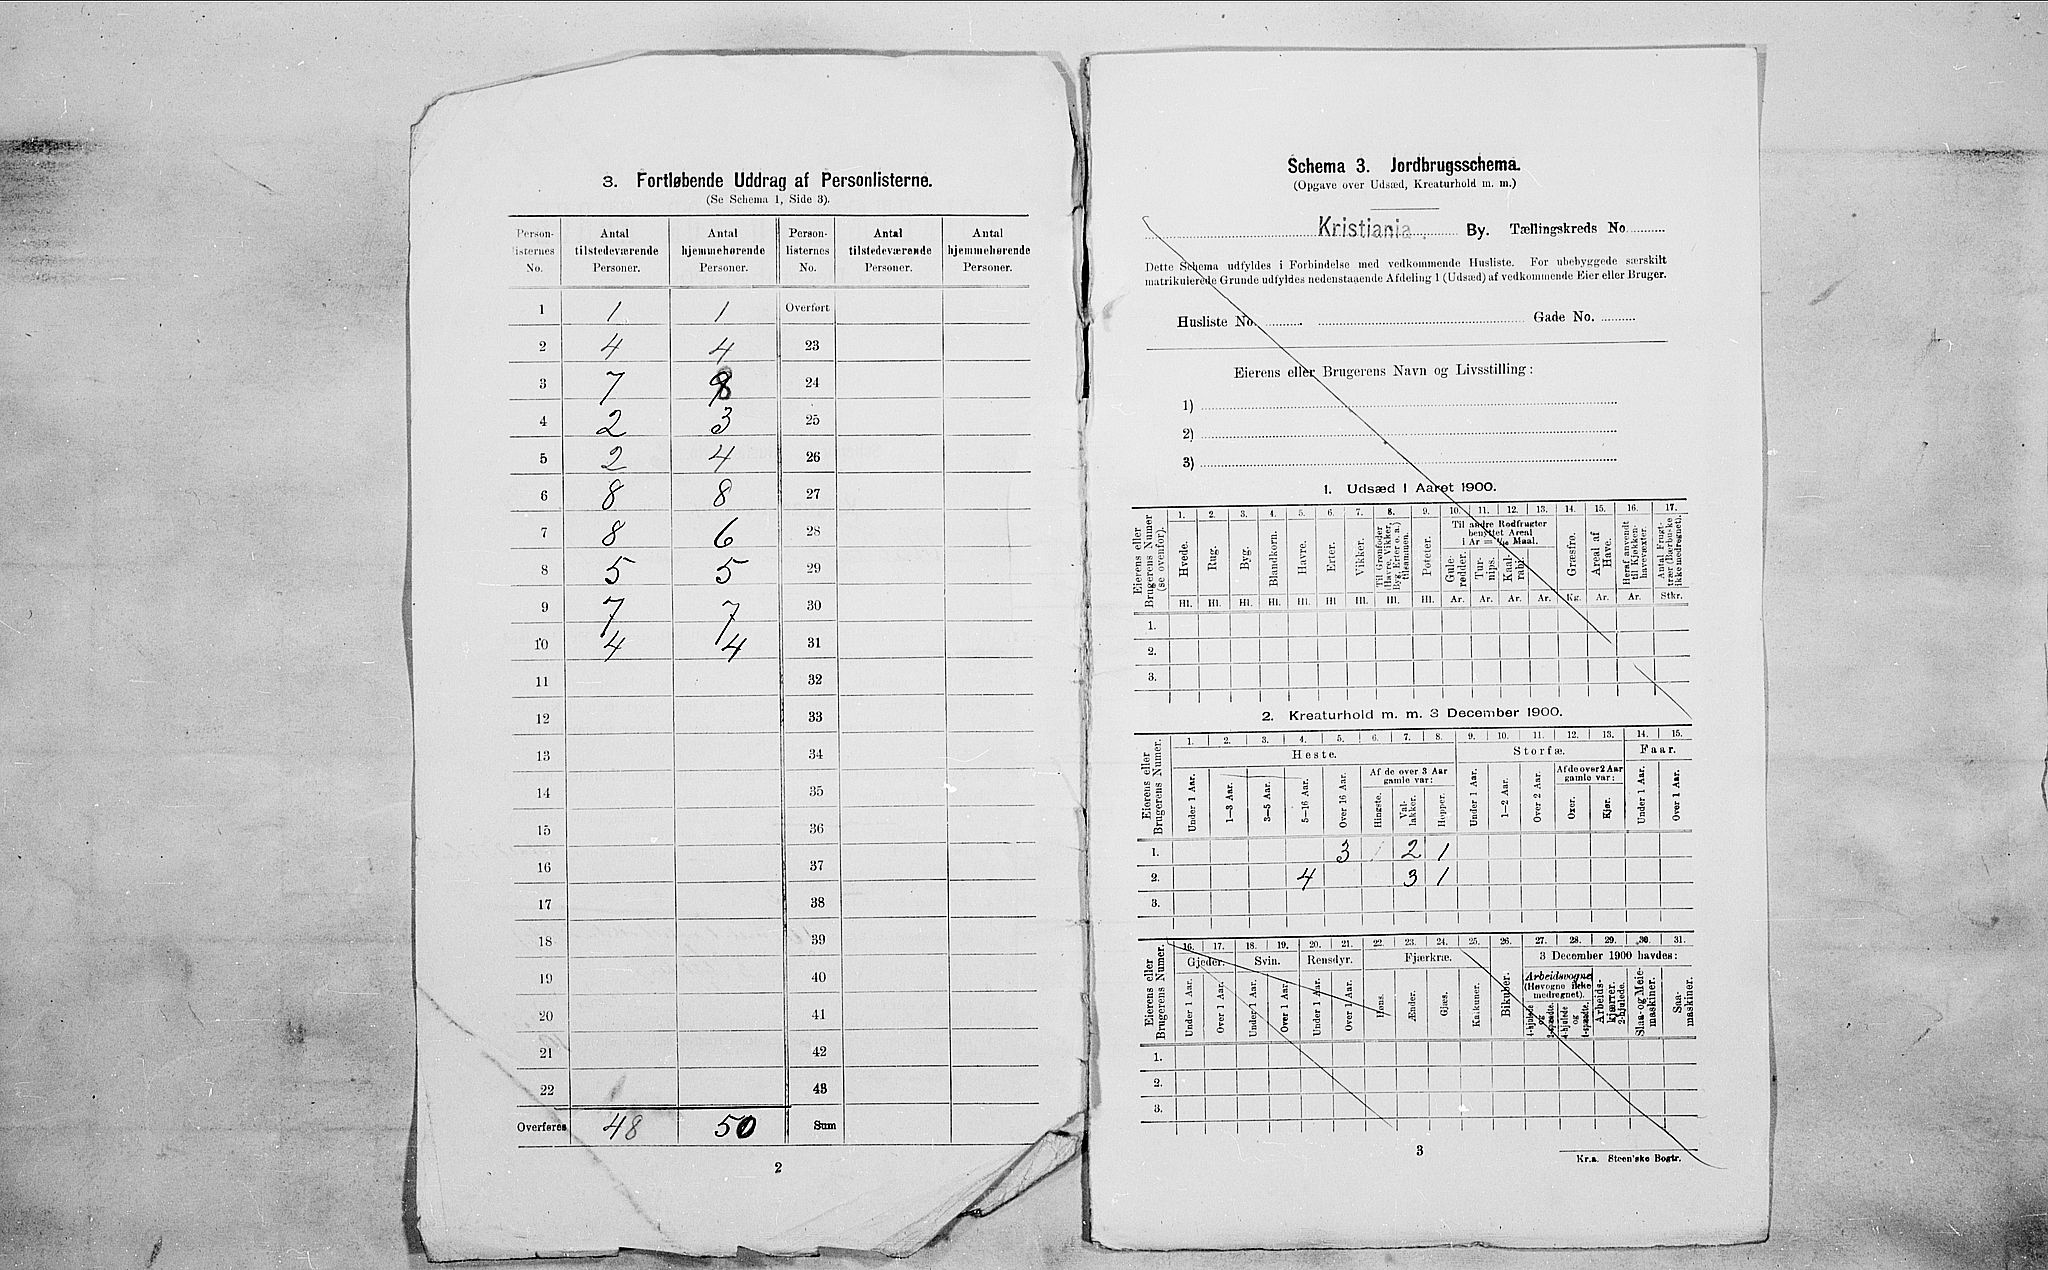 3. Fortløbende Uddrag af Personlisterne.
(Se Schema 1, Side 3).
Person-listernes No. | Antal tilstedeværende Personer. | Antal hjemmehørende Personer. | Person-listernes No. | Antal tilstedeværende Personer. | Antal hjemmehørende Personer.
1 | 1 | 1 | Overført
2 | 4 | 4 | 23
3 | 7 | 8 | 24
4 | 2 | 3 | 25
5 | 2 | 4 | 26
6 | 8 | 8 | 27
7 | 8 | 6 | 28
8 | 5 | 5 | 29
9 | 7 | 7 | 30
10 | 4 | 4 | 31
11 | 32
12 | 33
13 | 34
14 | 35
15 | 36
16 | 37
17 | 38
18 | 39
19 | 40
20 | 41
21 | 42
22 | 43
Overføres | 48 | 50 | Sum
2
Schema 3. Jordbrugsschema.
(Opgave over Udsæd, Kreaturhold m. m.)
Kristiania. By. Tællingskreds No
Dette Schema udfyldes i Forbindelse med vedkommende Husliste. For ubebyggede særskilt
matrikulerede Grunde udfyldes nedenstaaende Afdeling 1 (Udsæd) af vedkommende Eier eller Bruger.
Husliste No. Gade No.
Eierens eller Brugerens Navn og Livsstilling:
1)
2)
3)
1. Udsæd i Aaret 1900.
1. 2. 3. 4. 5. 6. 7. 8. 9. 10. 11. 12. 13. 14. 15. 16. 17.
Eierens eller Brugerens Numer (se ovenfor). | Hvede. | Rug. | Byg. | Blandkorn. | Havre. | Erter. | Vikker. | Til Grønfoder (Havre, Vikker, Byg, Erter o. a.) tilsammen. | Poteter. | Til andre Rodfrugter benyttet Areal i Ar = 1/10 Maal. | Gule-rødder. | Tur-nips. | Kaal-rabi. | Græsfrø. | Areal af Have. | Heraf anvendt til Kjøkken-havevæxter. | Antal Frugt-trær (Bærbuske ikke medregnet).
Hl. Hl. Hl. Hl. Hl. Hl Hl. Hl. Hl. Ar. Ar. Ar. Ar. Kg. Ar. Ar. Stkr.
1.
2.
3.
2. Kreaturhold m. m. 3 December 1900.
1. 2. 3. 4. 5. 6. 7. 8. 9. 10. 11. 12. 13. 14. 15.
Heste. | Storfæ. | Faar.
Eierens eller Brugerens Numer. | Under 1 Aar. | 1—3 Aar. | 3—5 Aar. | 5—16 Aar. | Over 16 Aar. | Af de over 3 Aar gamle var: | Hingste. | Val-lakker. | Hopper. | Under 1 Aar. | 1—2 Aar. | Over 2 Aar. | Af de over 2 Aar gamle var: | Oxer. | Kjør. | Under 1 Aar. | Over 1 Aar.
1. | 3 | 2 | 1
2. | 4 | 3 | 1
3.
16. 17. 18. 19. 20. 21. 22. 23. 24. 25. 26. 27. 28. 29. 30. 31.
Gjeder. | Svin. | Rensdyr. | Fjærkræ. | 3 December 1900 havdes:
Eierens eller Brugerens Numer. | Under 1 Aar. | Over 1 Aar. | Under 1 Aar. | Over 1 Aar. | Under 1 Aar. | Over 1 Aar. | Høns. | Ænder. | Gjæs. | Kalkuner. | Bikuber. | Arbeidsvogne (Høvogne ikke medregnet). | 4-hjulede og 2-spændte. | 4-hjulede og 1-spændte. | Arbeids-kjærrer, 2-hjulede. | Slaa- og Meie-maskiner. | Saa-maskiner.
1.
2.
3.
3
Kr.a. Steen'ske Bogtr.